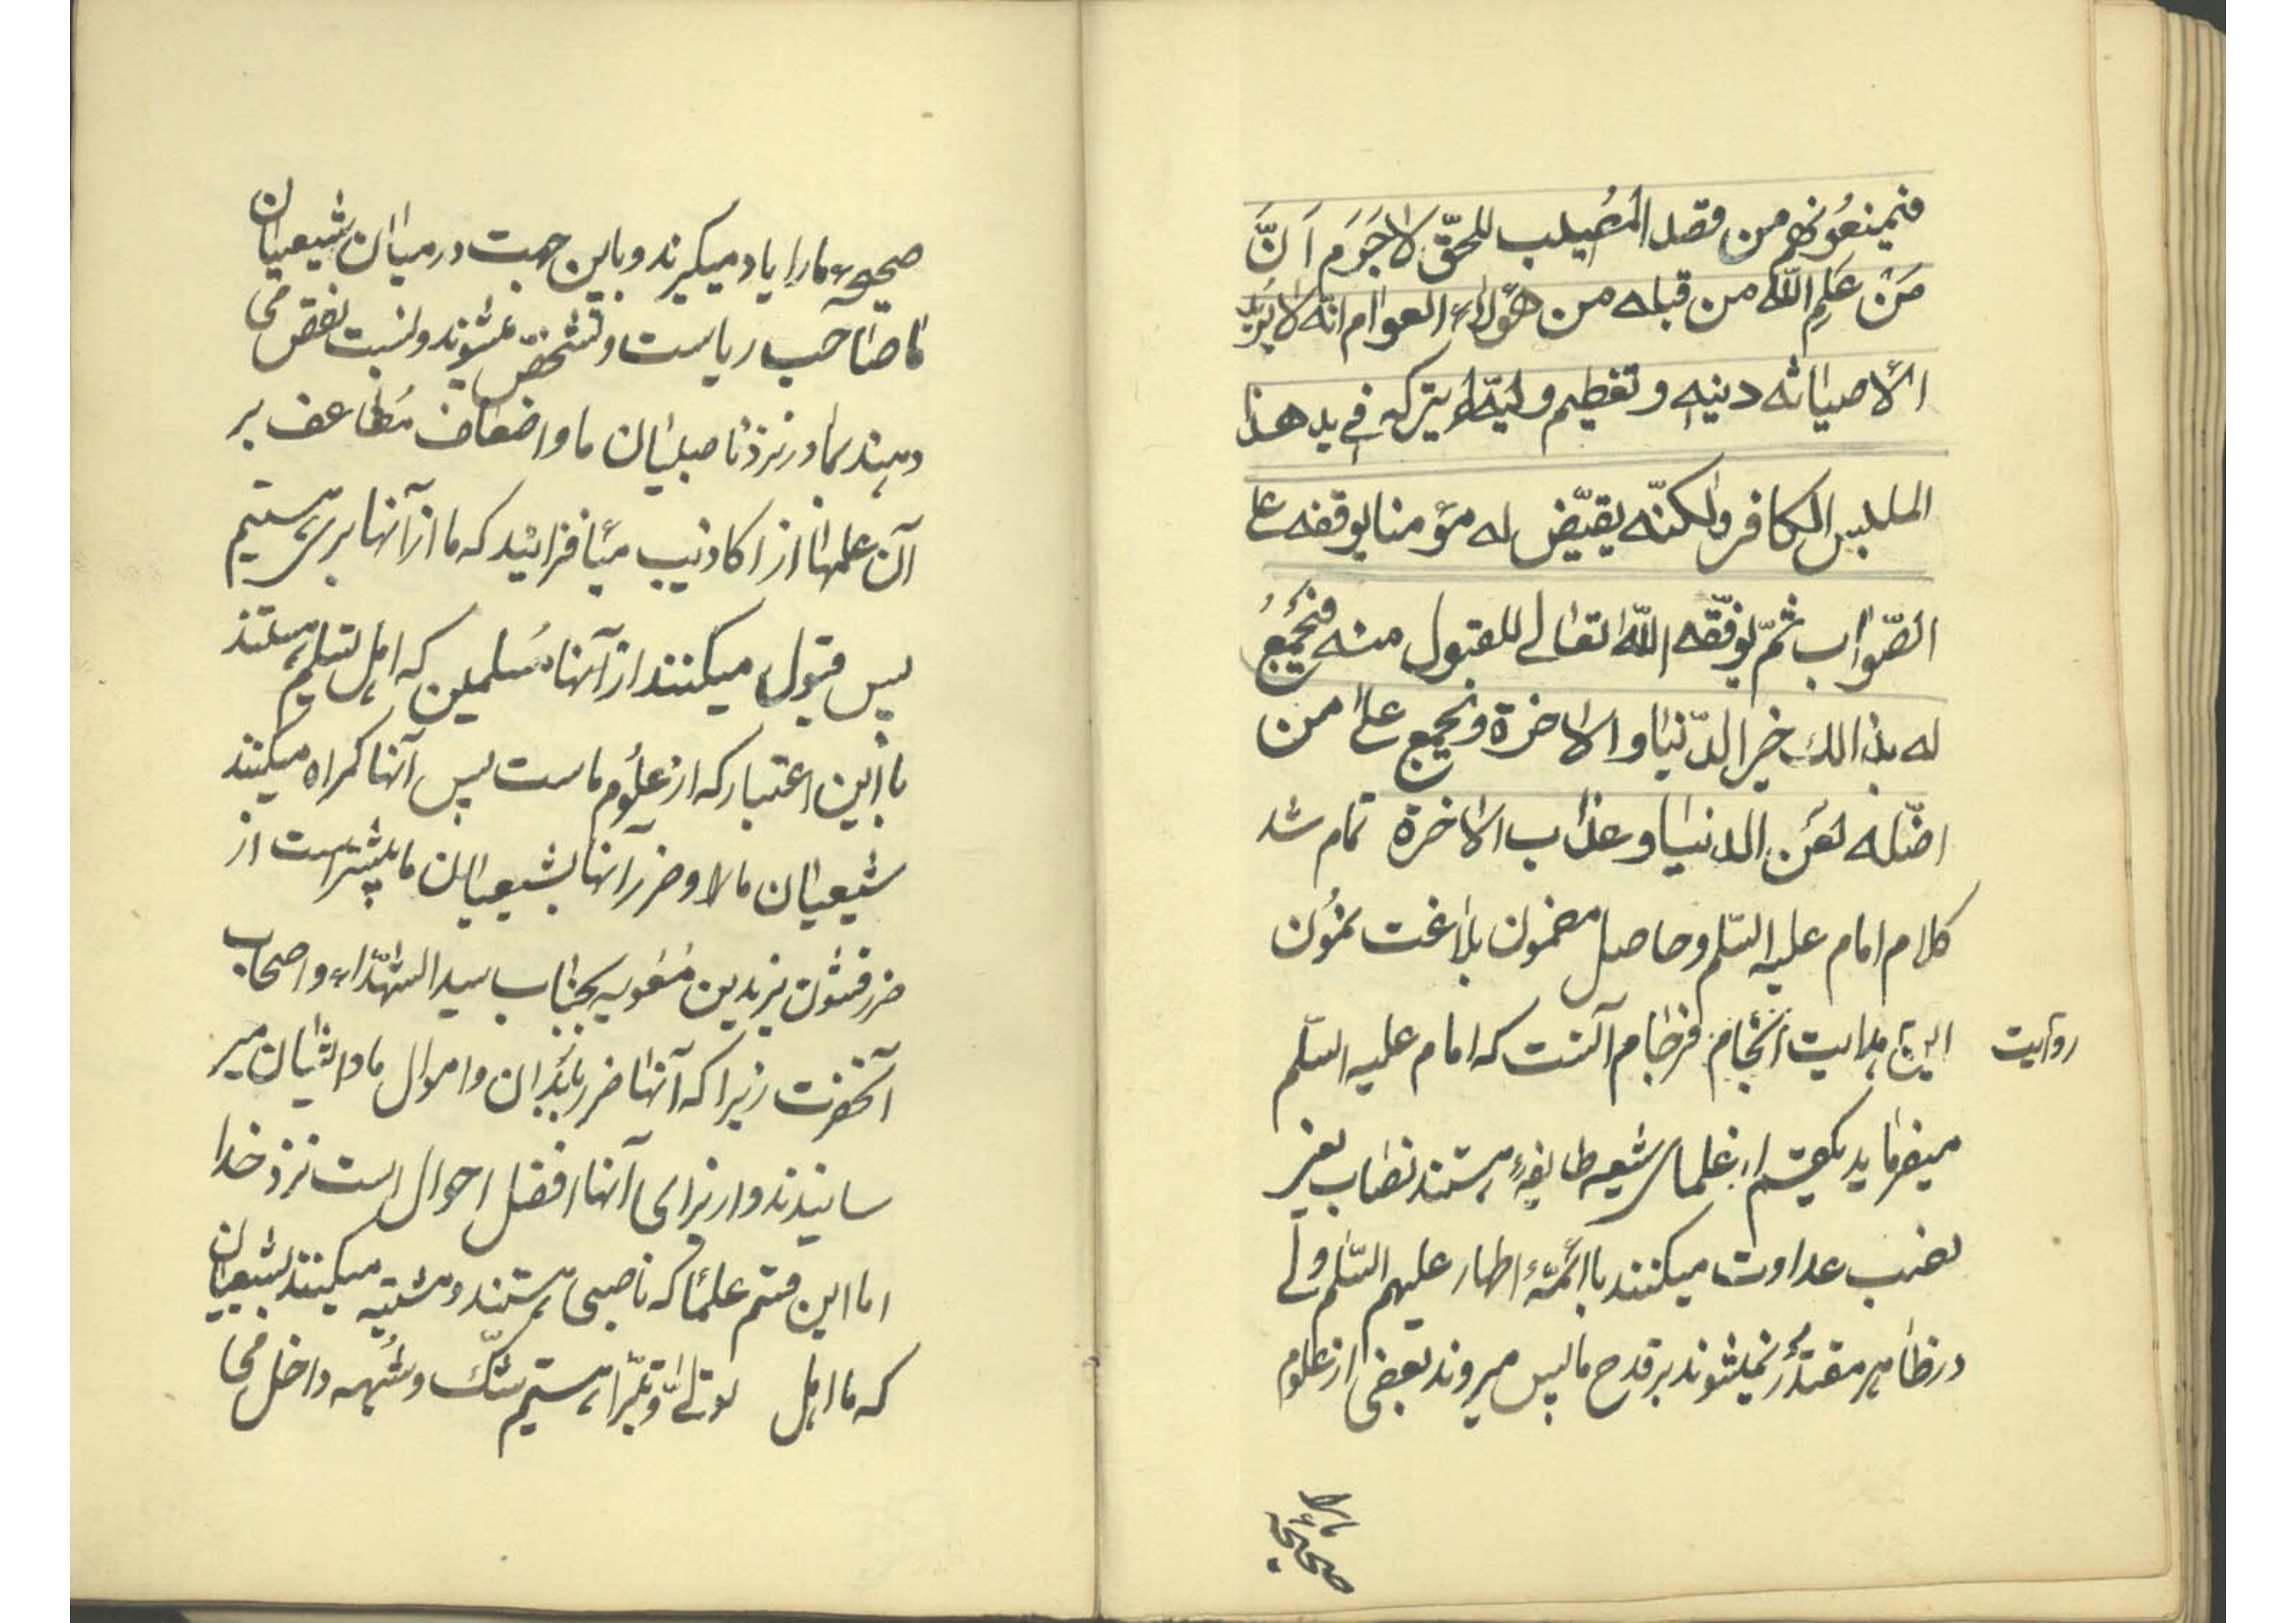 فیمنعونهم من قصد المصیب للحقّ لاجَرَم اَنَّ
مَنْ عَلِمِ اللّه من قبله من هؤلاء العوام انّه لا یُرید
الّا صیانة دینه و تعظیم ولیّه لم یترکه فی ید هذا
الملبس الکافر ولکنّه یقیّض له مؤمنا یوقفه علی
الصّواب ثمّ یوفّقه اللّه تعالی للقبول منه فیجمع
له بذالک خیر الدّنیا و الاخرة و یجمع علی من
اضّله لعن الدنیا و عذاب الاخرة تمام شد
کلام امام علیه السّلم و حاصل مضمون بلاغت نمون
روایت این هدایت انجام فرجام آنست که امام علیه السّلم
میفرماید یکقسم از علمای شیعه طایفهٔ هستند نصّاب یعنی
نصب عداوت میکنند با ائمّهٔ اطهار علیهم السّلم ولی
در ظاهر مقتدر نمیشوند بر قدح ما پس میروند بعضی از علوم
ما لا
صحیحه
صحیحهٔ ما را یاد میگیرند و باین جهت در میان شیعیان
ما صاحب ریاست و تشخّص میشوند و نسبت نقص می
دهند بما در نزد ناصبیان ما و اضعاف مضاعف بر
آن علمها از اکاذیب میافزایند که ما از آنها بری هستیم
پس قبول میکنند از آنها مسلمین که اهل تسلیم هستند
با این اعتبار که از علوم ماست پس آنها گمراه میکنند
شیعیان ما لا و ضرر آنها بشیعیان ما بیشتر است از
ضرر قشون یزید بن معویه بجناب سید الشهداء و اصحاب
آنحضرت زیرا که آنها ضرر بابدان و اموال ما و ایشان میر
سانیدند و از برای آنها افضل احوال است نزد خدا
اما این قسم علما که ناصبی هستند و مشتبه میکنند بشیعیان
که ما اهل تولّی و تبرّا هستیم شکّ و شبهه داخل می